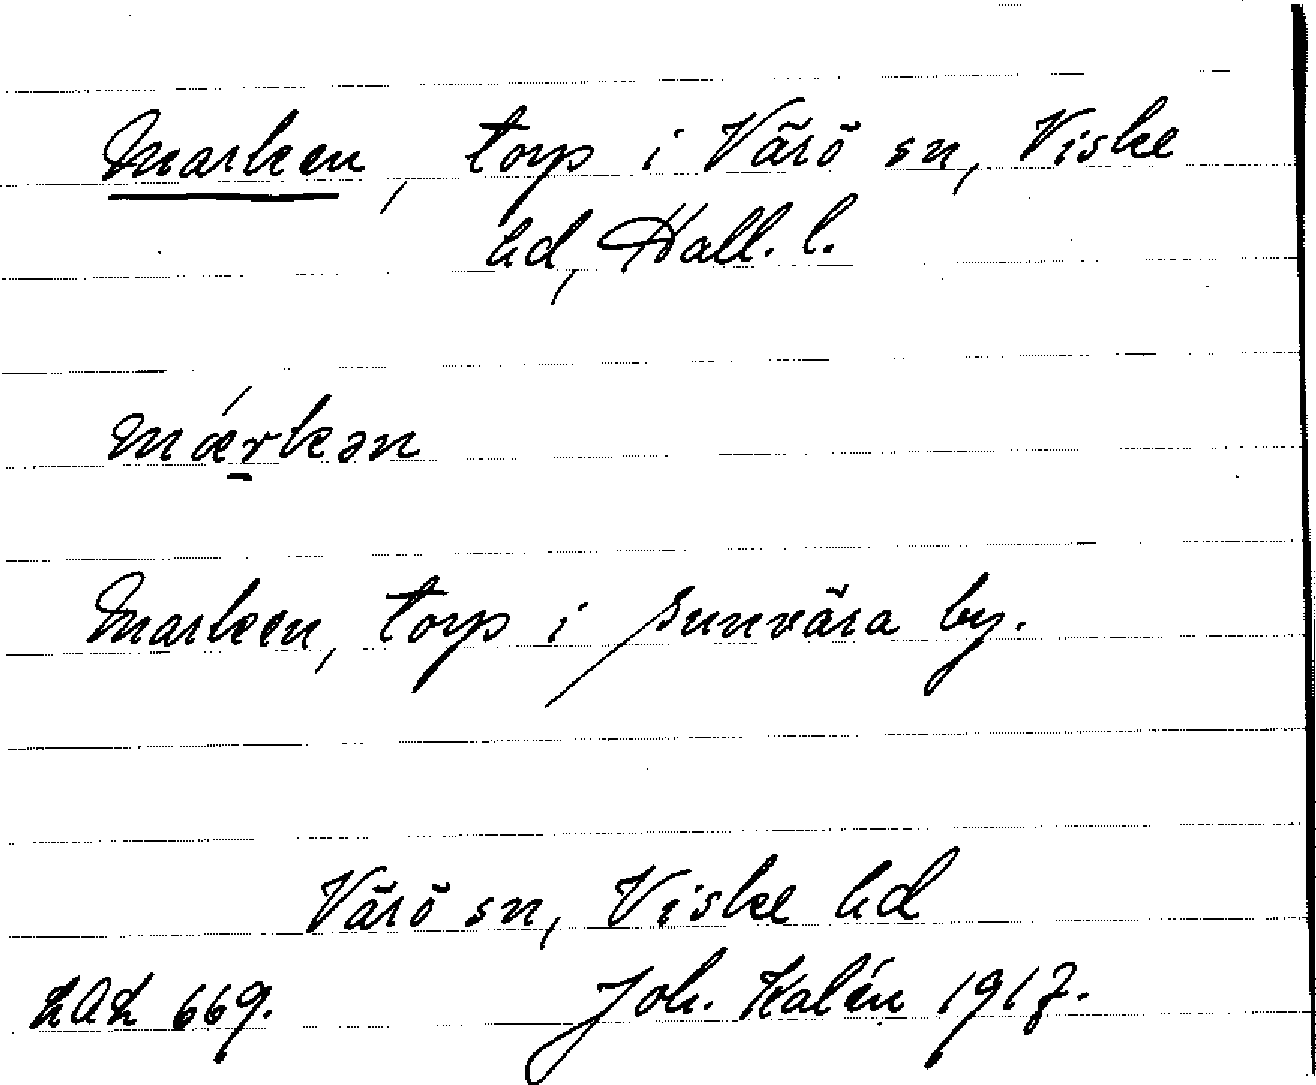 Marken, torp i Värö sn, Viske
hd, Hall. l.
mǽrkən
Marken, torp i Sunvära by.
Värö sn, Viske hd
LAL 669. Joh. Kalén 1917.